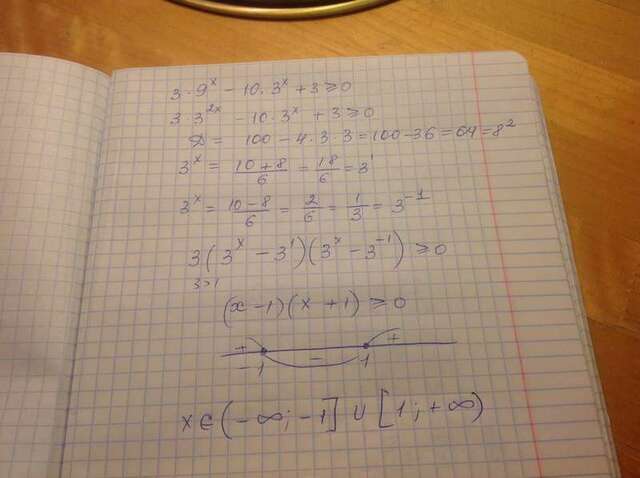 3·9ˣ − 10·3ˣ + 3 ≥ 0
3·3²ˣ − 10·3ˣ + 3 ≥ 0
D = 100 − 4·3·3 = 100 − 36 = 64 = 8²
3ˣ = (10+8)/6 = 18/6 = 3¹
3ˣ = (10−8)/6 = 2/6 = 1/3 = 3⁻¹
3(3ˣ − 3¹)(3ˣ − 3⁻¹) ≥ 0
3>1
(x−1)(x+1) ≥ 0
+ − +
−1 1
x ∈ (−∞; −1] ∪ [1; +∞)